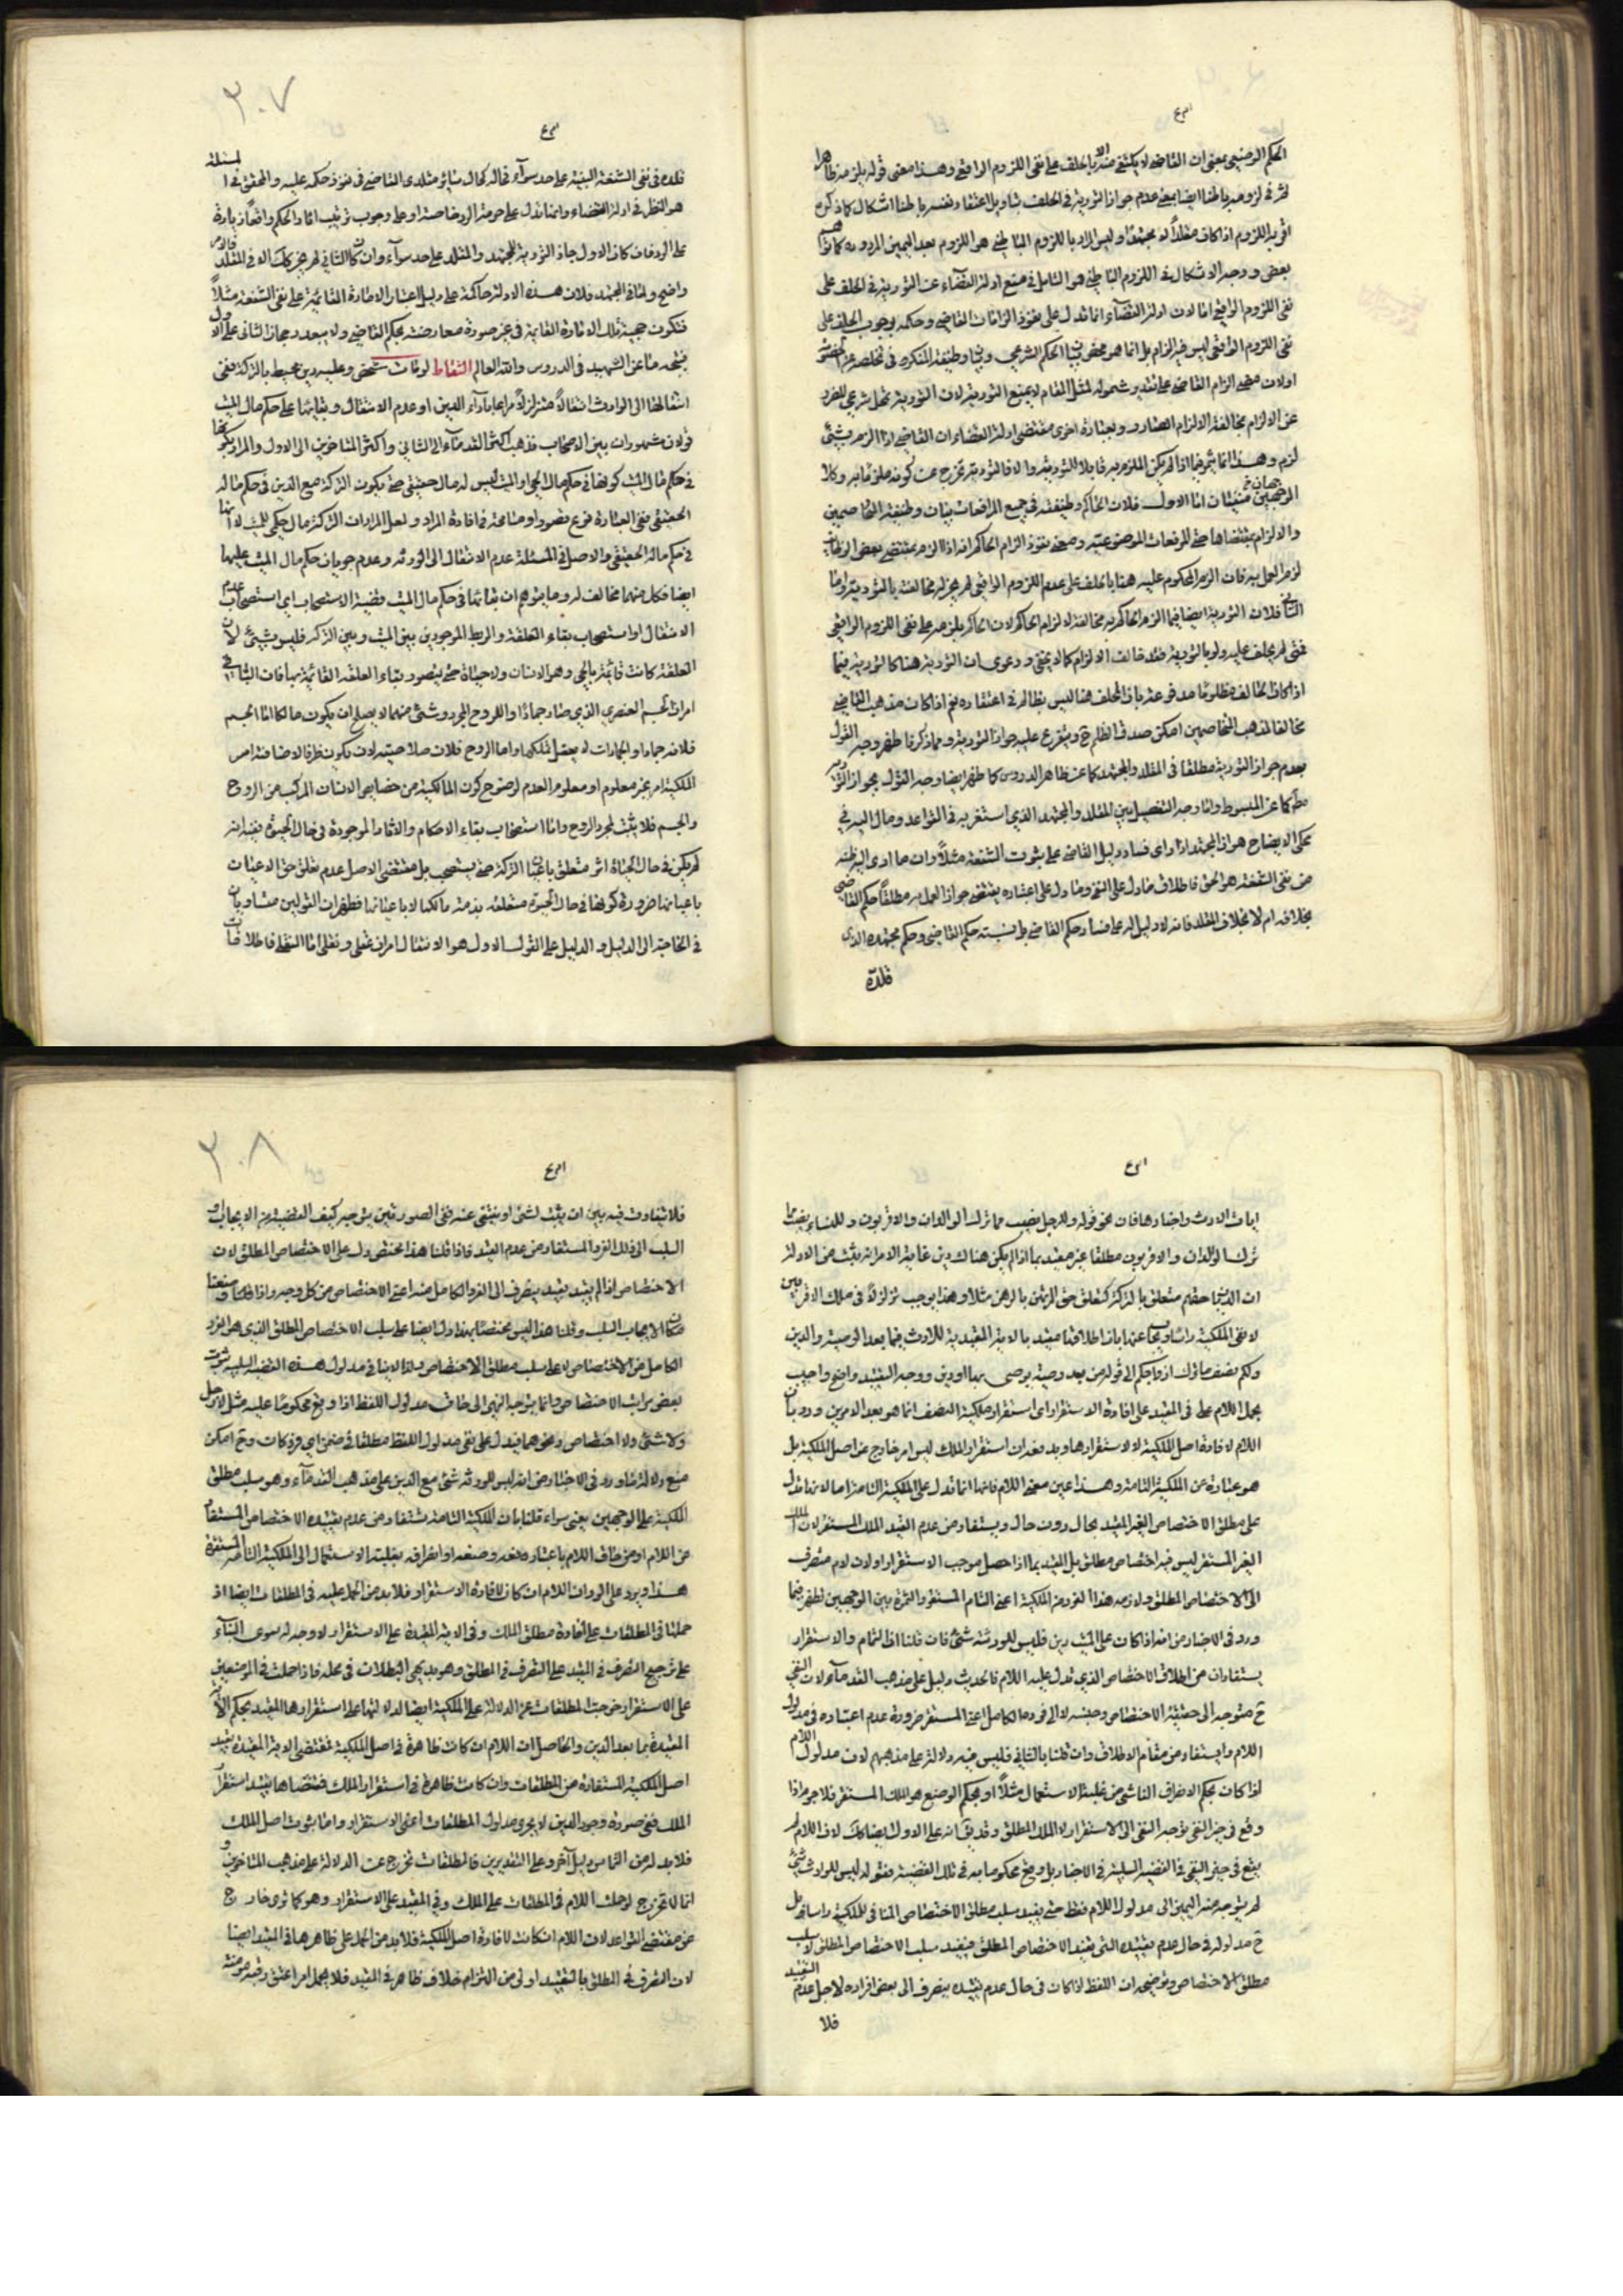 الحكم الوضعي بمعنى ان القاضي لا يكتفي منه الا بالحلف على نفى اللزوم الواقعي وهذا معنى قوله يلزمه ظاهرا
ثم في لزومه باطنا ايضا بمعنى عدم جواز التورية في الحلف بتاويل اعتقاد نفسه باطنا اشكال كما ذكره
اقربه اللزوم اذا كان مقلدا لا مجتهدا وليس المراد باللزوم الباطني هو اللزوم بعد اليمين المردودة كما توهمه
بعض ووجه الاشكال في اللزوم الباطني هو التامل في منع ادلة القضاء عن التورية في الحلف على
نفى اللزوم الواقعي اما لان ادلة القضاء انما تدل على نفوذ الزامات القاضي وحكمه بوجوب الحلف على
نفى اللزوم الواقعي ليس فيه الزام بل انما هو محض بيان الحكم الشرعي وبيان وظيفة المنكر في تخلصه عن الخصومة
اولان معنى الزام القاضي على تقدير شموله لمثل المقام لا يمنع التورية لان التورية تخل شرعي للفرد
عن الالزام بمخالفة الالزام الصادر وبعبارة اخرى مقتضى ادلة القضاء ان القاضي اذا الزم بشئ
لزم وهذا انما يثمر فيما اذا لم يكن الملزم به قابلا للتورية والا فالتورية تخرج عن كونه ملزما به وكلا
الوجهين ضعيفان اما الاول فلان الحاكم وظيفته في جميع المرافعات بيان وظيفة المتخاصمين
والالزام بمقتضاها حتى المرفعات الموضوعية ومعنى نفوذ الزام الحاكم انه اذا الزم بمقتضى بعض الوظائف
لزم العمل به فان الزم المحكوم عليه هنا بالحلف على عدم اللزوم الواقعي لم يجز له مخالفته بالتورية واما
الثاني فلان التورية ايضا فيما الزم الحاكم به مخالفة لالزام الحاكم لان الحاكم يلزمه على نفى اللزوم الواقعي
فمتى لم يحلف عليه ولو بالتورية فقد خالف الالزام كما لا يخفى ودعوى ان التورية هنا كالتورية فيما
اذا كان الحالف مظلوما مدفوعة بان المحلف هنا ليس بظالم في اعتقاده نعم اذا كان مذهب القاضي
مخالفا لمذهب المتخاصمين امكن صدق الظلم ح ويتفرع عليه جواز التورية ومما ذكرنا ظهر وجه القول
بعدم جواز التورية مطلقا في المقلد والمجتهد كما عن ظاهر الدروس كما ظهر ايضا وجه القول بجواز التورية
مط كما عن المبسوط واما وجه التفصيل بين المقلد والمجتهد الذي استقربه في القواعد ومال اليه في
محكى الايضاح هو ان المجتهد اذا راى فساد دليل القاضي على ثبوت الشفعة مثلا وان ما ادى اليه ظنه
من نفى الشفعة هو الحق فاطلاق ما دل على النفي وما دل على اعتباره يقتضي جواز العمل به مطلقا حكم القاضي
بخلافه ام لا بخلاف المقلد فانه لا دليل له على فساد حكم القاضي بل نسبته حكم القاضي وحكم مجتهده الذي
قلده
٣٠٧
قلده في نفى الشفعة اليه على حد سواء فحاله كحال سائر مقلدي القاضي في نفوذ حكمه عليه والمحقق في المسئلة
هو النظر في ادلة القضاء وانما تدل على حرمة الرد خاصة او على وجوب ترتيب اثار الحكم واقعا زيادة
على الرد فان كان الاول جاز التورية للمجتهد والمقلد على حد سواء وان كان الثاني لم يجز كك اما في المقلد فالامر
واضح واما في المجتهد فلان هذه الادلة حاكمة على دليل اعتبار الامارة القائمة على نفى الشفعة مثلا
فتكون حجية تلك الامارة القائمة في غير صورة معارضته بحكم القاضي ولا يبعد رجحان الثاني على الاول
فيتجه ما عن الشهيد في الدروس والله العالم التقاط لو مات شخص وعليه دين محيط بالتركة ففي
انتقالها الى الوارث انتقالا متزلزلا مراعا باداء الدين او عدم الانتقال وبقائها على حكم مال الميت
قولان مشهوران بين الاصحاب فذهب اكثر القدماء الى الثاني واكثر المتاخرين الى الاول والمراد بكونها
في حكم مال الميت كونها في حكم مال الحي اذ الميت ليس له مال حقيقي حتى يكون التركة مع الدين في حكم ماله
الحقيقي ففي العبارة نوع قصور او مسامحة في افادة المراد ولعل المراد ان التركة مال حكمي للميت لا انها
في حكم ماله الحقيقي والاصل في المسئلة عدم الانتقال الى الورثة وعدم جريان حكم مال الميت عليها
ايضا فكل منهما مخالف له وما يتوهم ان بقائها في حكم مال الميت قضية الاستصحاب اي استصحاب عدم
الانتقال او استصحاب بقاء العلقة والربط الموجودين بين الميت وبين التركة فليس بشئ لان
العلقة كانت قائمة بالحي وهو الانسان ولا حياة حتى يتصور بقاء العلقة القائمة بها فان الباقي
امران الجسم العنصري الذي صار جمادا والروح المجرد وشئ منهما لا يصلح ان يكون مالكا اما الجسم
فلانه جماد والجمادات لا يعقل تملكها واما الروح فلان صلاحيته لان يكون طرفا لاضافة امر
الملكية امر غير معلوم او معلوم العدم لوضوح كون المالكية من خصايص الانسان المركب من الروح
والجسم فلا يثبت لمجرد الروح واما استصحاب بقاء الاحكام والاثار الموجودة في حال الحيوة ففيه انه
لم يكن في حال الحياة اثر متعلق باعيان التركة حتى يستصحب بل مقتضى الاصل عدم تعلق حق الاعيان
باعيانها ضرورة كونها في حال الحيوة متعلقة بذمة مالكها لا باعيانها فظهر ان القولين متساويان
في الحاجة الى الدليل والدليل على القول الاول هو الانتقال امران عقلى ونقلى اما النقلى فاطلاقات
ايات الارث واخباره فان نحو قوله وللرجل نصيب مما ترك الوالدان والاقربون وللنساء نصيب مما
ترك الوالدان والاقربون مطلقا غير مقيد بما اذا لم يكن هناك دين غاية الامر انه يثبت من الادلة
ان الديان حقهم متعلق بالتركة كتعلق حق المرتهن بالرهن مثلا وهذا يوجب تزلزلا في ملك الاقربين
لا نفى الملكية راسا ويجاب عنها بان اطلاقها مقيد بالاية المقيدة للارث فيما بعد الوصية والدين
ولكم نصف ما ترك ازواجكم الى قوله من بعد وصية يوصى بها او دين ووجه التقييد واضح واجيب
بحمل اللام في المقيد على افادة الاستقرار اى استقرار ملكية النصف انما هو بعد الامرين ورد بان
اللام لافادة اصل الملكية لا لاستقرارها ويدفعه ان استقرار الملك ليس امر خارج عن اصل الملكية بل
هو عبارة عن الملكية التامة وهذا عين معنى اللام فانها انما تدل على الملكية التامة اصالة لانها تدل
على مطلق الاختصاص الغير المقيد بحال دون حال ويستفاد من عدم القيد الملك المستقر لان الملك
الغير المستقر ليس فيه اختصاص مطلق بل مقيد بما اذا حصل موجب الاستقرار اولان اللام منصرف
الى الاختصاص المطلق ولازمه هذا الفرد من الملكية اعني التام المستقر والثمرة بين الوجهين تظهر فيما
ورد في الاخبار من انه اذا كان على الميت دين فليس للورثة شئ فان قلنا ان التمام والاستقرار
يستفادان من اطلاق الاختصاص الذي تدل عليه اللام فالحديث دليل على مذهب القدماء لان النفي
ح متوجه الى حقيقة الاختصاص وجنسه لا الى فرده الكامل اعني المستقر ضرورة عدم اعتباره في مدلول
اللام وانما يستفاد من مقام الاطلاق وان قلنا بالثاني فليس فيه دلالة على مذهبهم لان مدلول اللام
اذا كان بحكم الانصراف الناشي من غلبة الاستعمال مثلا او بحكم الوضع هو الملك المستقر فلا جرم اذا
وقع في حيز النفي توجه النفي الى الاستقرار لا الملك المطلق وقد يقال انه على الاول ايضا كك لان اللام لم
يقع في حيز النفي في القضية السلبية في الاخبار بل وقع محكوما به في تلك القضية فقوله ليس للوارث شئ
لم يتوجه منه النفي الى مدلول اللام فقط حتى يفيد سلب مطلق الاختصاص المنافي للملكية راسا بل
ح مدلوله في حال عدم تقييده التى يفيد الاختصاص المطلق فيفيد سلب الاختصاص المطلق لا سلب
مطلق الاختصاص وتوضيحه ان اللفظ اذا كان في حال عدم تقييده ينصرف الى بعض افراده لاجل عدم التقييد
فلا
٣٠٨
فلا يتفاوت فيه بين ان يثبت لشئ او ينتفي عنه ففى الصورتين يتوجه كيف القضية من الايجاب او
السلب الى ذلك الفرد المستفاد من عدم القيد فاذا قلنا هذا مختص دل على الاختصاص المطلق لان
الاختصاص اذا لم يقيد بقيد ينصرف الى الفرد الكامل منه اعني الاختصاص من كل وجه واذا قلنا وضعنا
مكان الايجاب السلب وقلنا هذا ليس مختصا بهذا دل ايضا على سلب الاختصاص المطلق الذي هو الفرد
الكامل من الاختصاص لا على سلب مطلق الاختصاص ولذا لا ينافي مدلول هذه القضية السلبية ثبوت
بعض مراتب الاختصاص وانما يتوجه النفي الى حاق مدلول اللفظ اذا وقع محكوما عليه مثل لا رجل
ولا شئ ولا اختصاص ونحوهما فيدل على نفى مدلول اللفظ مطلقا في ضمن اي فرد كان وح امكن
منع دلالة ما ورد في الاخبار من انه ليس للورثة شئ مع الدين على مذهب القدماء وهو سلب مطلق
الملكية على الوجهين يعني سواء قلنا بان الملكية التامة يستفاد من عدم تقييده الاختصاص المستفاد
من اللام او من حاق اللام باعتبار وضعه او انصرافه بغلبة الاستعمال الى الملكية التامة المستقرة
هذا ويرد على الرد ان اللام ان كان لافادة الاستقرار فلا بد من الحمل عليه في المطلقات ايضا اذ
حملنا في المطلقات على افادة مطلق الملك وفي الاية المقيدة على الاستقرار لا وجه له سوى البناء
على ترجيح التصرف في المقيد على التصرف في المطلق وهو بديهي البطلان في محله فاذا حملت في الموضعين
على الاستقرار خرجت المطلقات عن الدلالة على الملكية ايضا لدلالتها على استقرارها المقيد بحكم الاية
المقيدة بما بعد الدين والحاصل ان اللام ان كان ظاهرة في اصل الملكية فمقتضى الاية المقيدة تقييد
اصل الملكية المستفادة من المطلقات وان كانت ظاهرة في استقرار الملك فمقتضاها تقييد استقرار
الملك ففي صورة وجود الدين لا يجرى مدلول المطلقات اعني الاستقرار واما ثبوت اصل الملك
فلا بد له من التماس دليل آخر وعلى التقديرين فالمطلقات تخرج عن الدلالة على مذهب المتاخرين و
انما لا تخرج لو حمل اللام في المطلقات على الملك وفي المقيد على الاستقرار وهو كما ترى خارج
عن مقتضى القواعد لان اللام ان كانت لافادة اصل الملكية فلا بد من الحمل على ظاهرها في المقيد ايضا
لان التصرف في المطلق بالتقييد اولى من التزام خلاف ظاهر في المقيد فلا يحمل امر اعتق رقبة مومنة